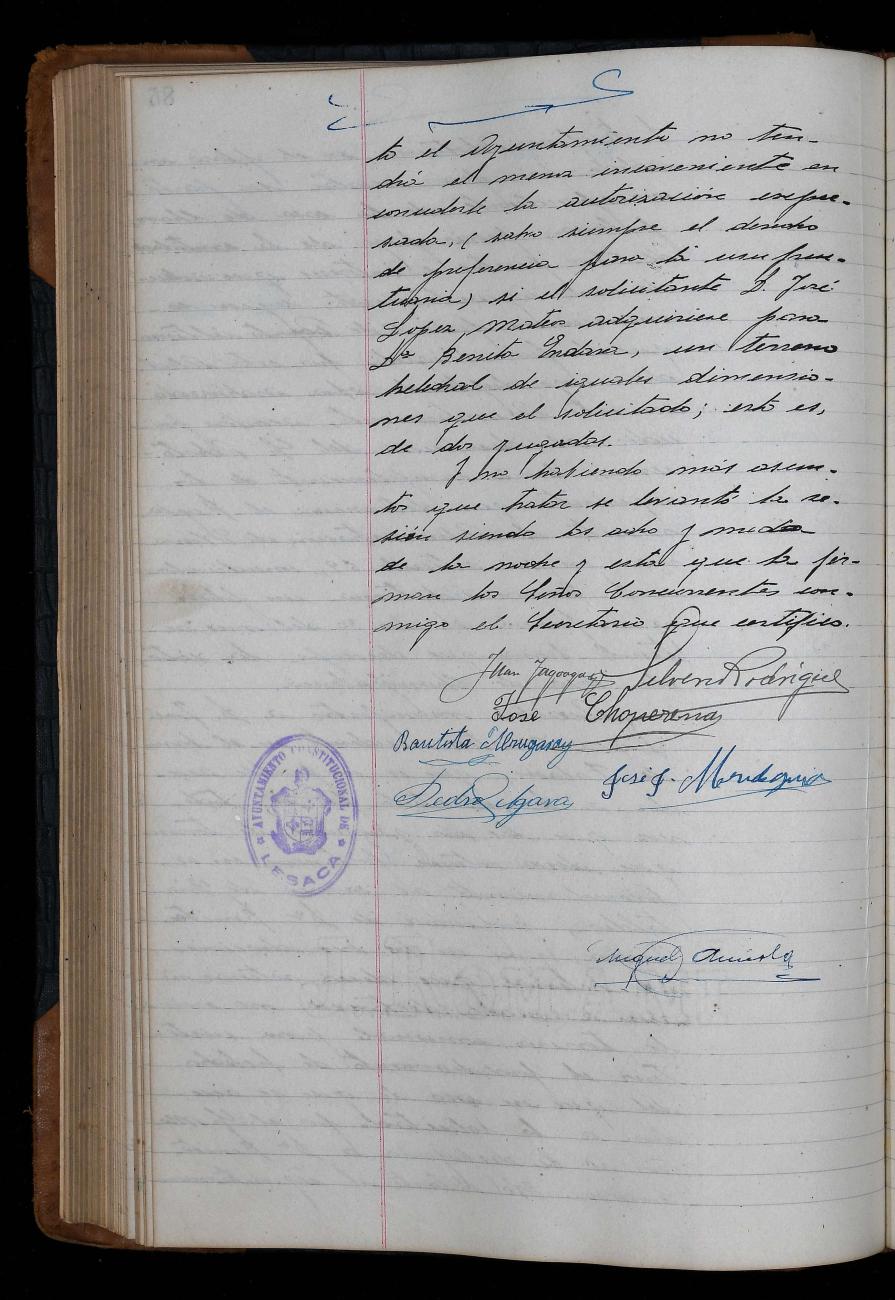 to el Ayuntamiento no ten-
drá el menor inconveniente en
concederle la autorización expre-
sada, (salvo siempre el derecho
de preferencia para la usufruc-
tuaria) si el solicitante D. José
López Mateos adquiriese para
Dª Benita Endara, un terreno
helechal de iguales dimensio-
nes que el solicitado; esto es,
de dos yugadas.
Y no habiendo más asun-
tos que tratar se levantó la se-
sión siendo las ocho y media
de la noche y esta que la fir-
man los Seños Concurrentes con-
migo el Secretario que certifico.
Juan Silverio Rodriguez
José Choperena
Bautista
José J. Mendeguia
Pedro
AYUNTAMIENTO CONSTITUCIONAL DE
LESACA
Miguel